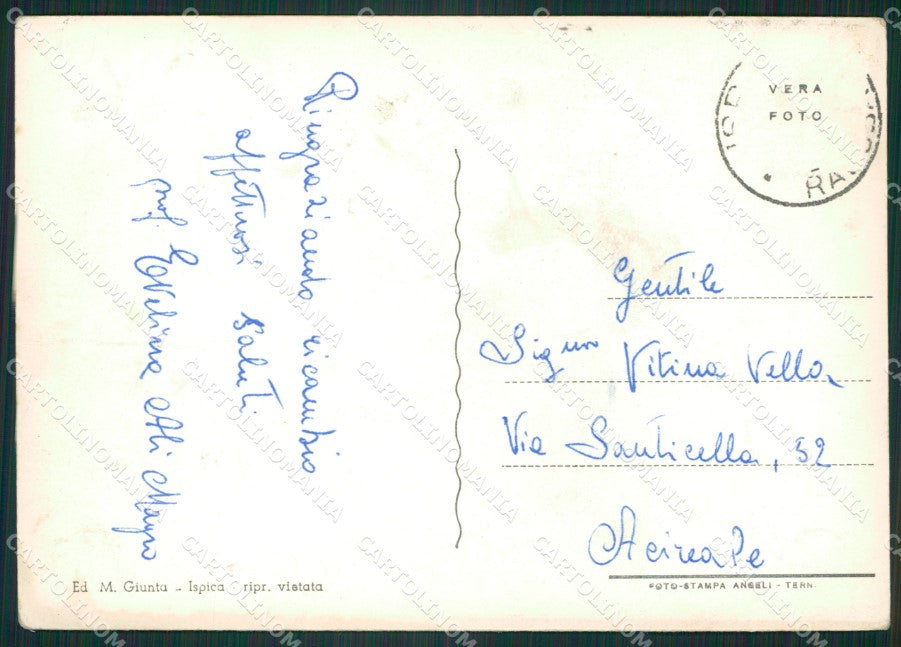 Ringraziando ricambio
affettuosi saluti
prof. Evelina Alì
VERA
FOTO
RA
Gentile
Sig.
Vitina Vella
Via Santicella, 52
Acireale
Ed M. Giunta - Ispica ripr. vietata
FOTO-STAMPA ANGELI - TERNI
CARTOLINOMANIA